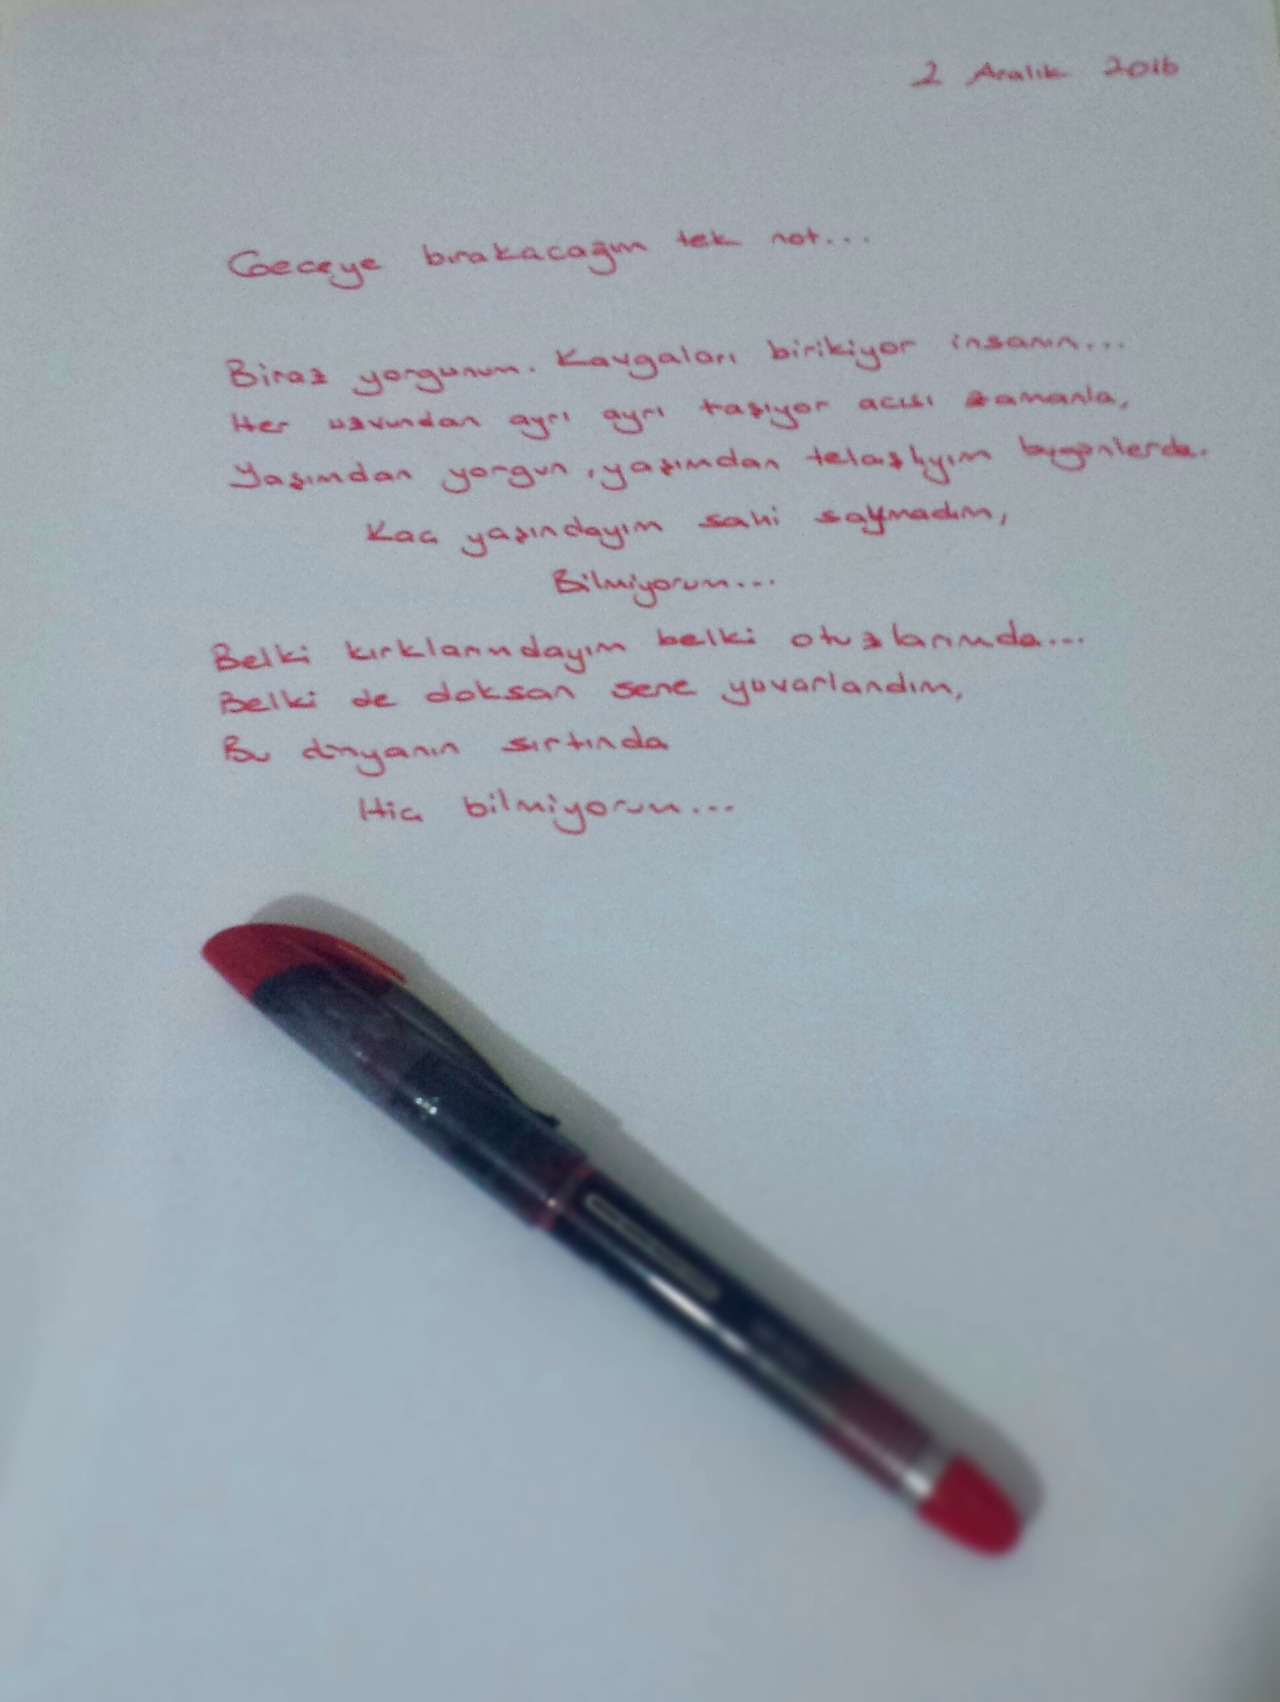 2 Aralık 2016
Geceye bırakacağım tek not...
Biraz yorgunum. Kavgaları birikiyor insanın...
Her uzvundan ayrı ayrı taşıyor acısı zamanla,
Yaşımdan yorgun, yaşımdan telaşlıyım bugünlerde.
Kaç yaşındayım sahi saymadım,
Bilmiyorum...
Belki kırklarındayım belki otuzlarımda...
Belki de doksan sene yuvarlandım,
Bu dünyanın sırtında
Hiç bilmiyorum...